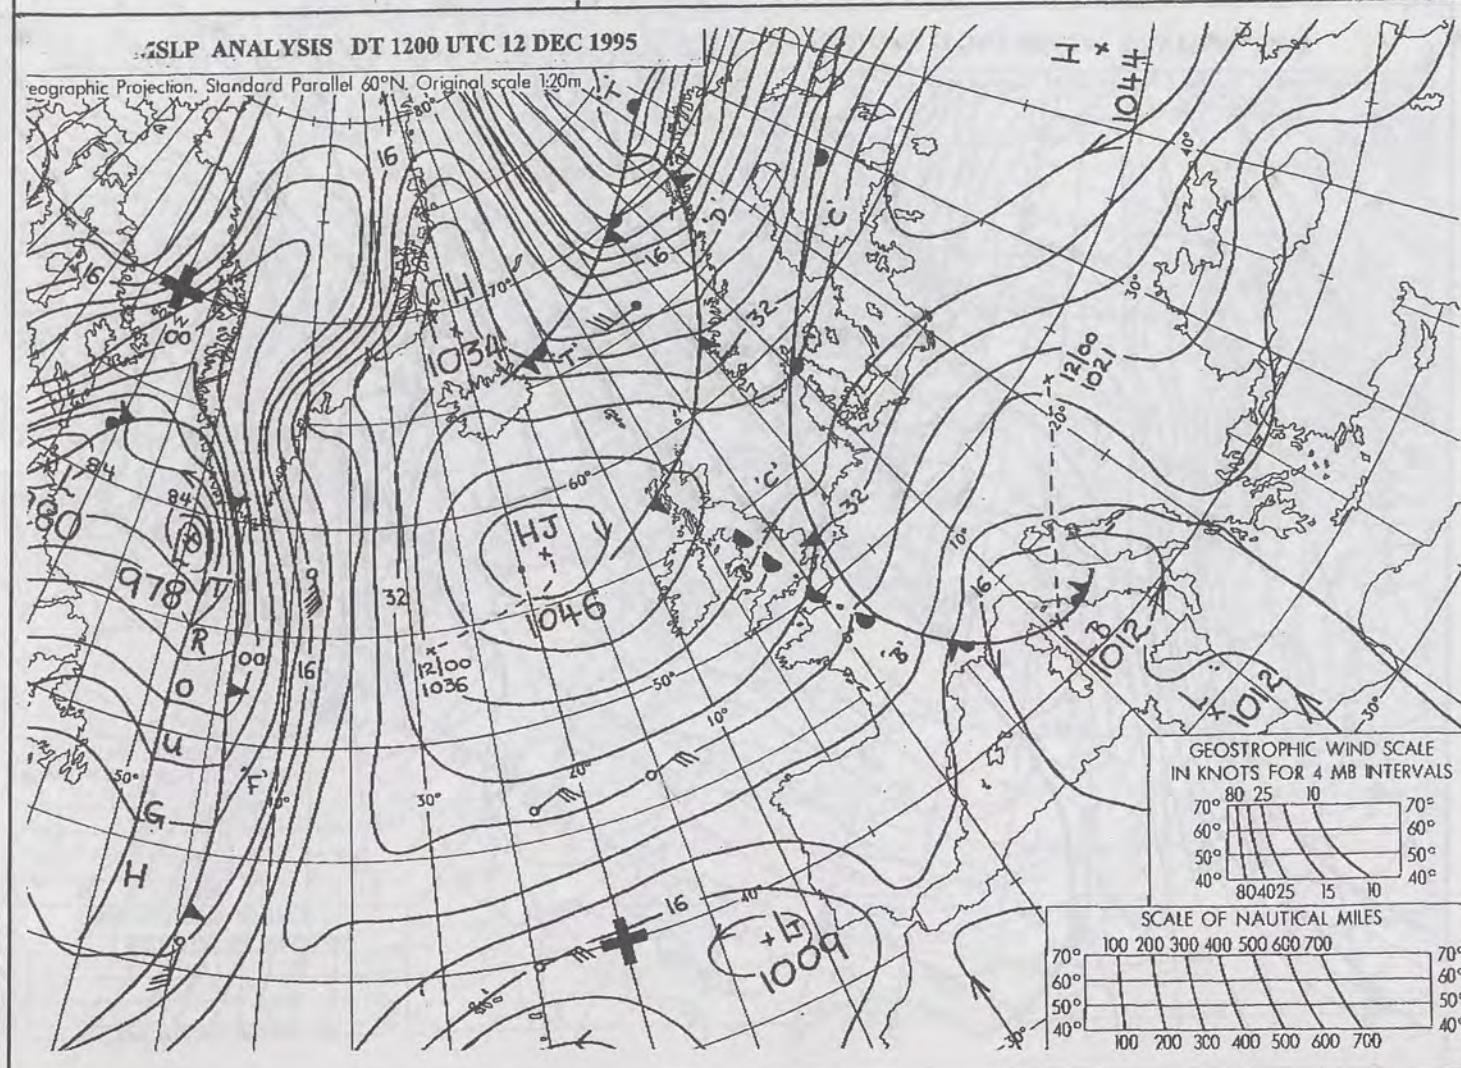 MSLP ANALYSIS DT 1200 UTC 12 DEC 1995
eographic Projection. Standard Parallel 60°N. Original scale 1:20m
80°
'T'
H
1044
16
40°
'D'
'C'
16
16
H
70°
1034
'T'
32
30°
00
12/00
1021
20°
84
84
80
978
60°
'C'
32
HJ
1046
10°
16
32
T
R
O
U
G
H
00
16
12/00
1036
50°
'B'
LB
1012
L
1012
30°
10°
20°
30°
50°
'F'
40°
16
40°
LJ
1009
30°
GEOSTROPHIC WIND SCALE
IN KNOTS FOR 4 MB INTERVALS
80 25 10
70° 70°
60° 60°
50° 50°
40° 40°
80 40 25 15 10
SCALE OF NAUTICAL MILES
100 200 300 400 500 600 700
70° 70°
60° 60°
50° 50°
40° 40°
100 200 300 400 500 600 700